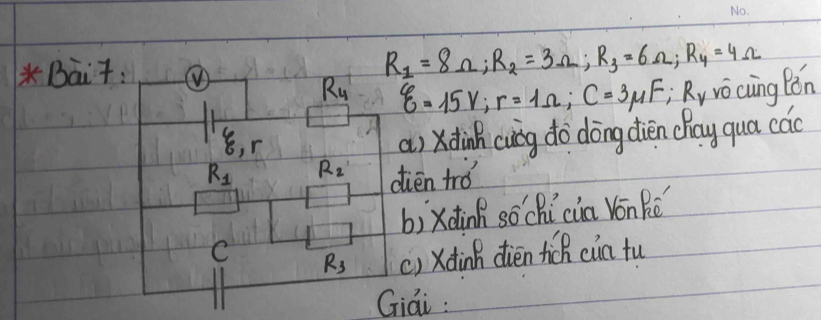 No.
* Bài 7:
R₁ = 8Ω; R₂ = 3Ω; R₃ = 6Ω; R₄ = 4Ω
ℰ = 15V; r = 1Ω; C = 3μF; Rᵥ vô cùng lớn
a) Xđịnh cường độ dòng điện chạy qua các
điện trở
b) Xđịnh số chỉ của Vôn kế
c) Xđịnh điện tích của tụ
V
R₄
ℰ, r
R₁
R₂
R₃
C
Giải: